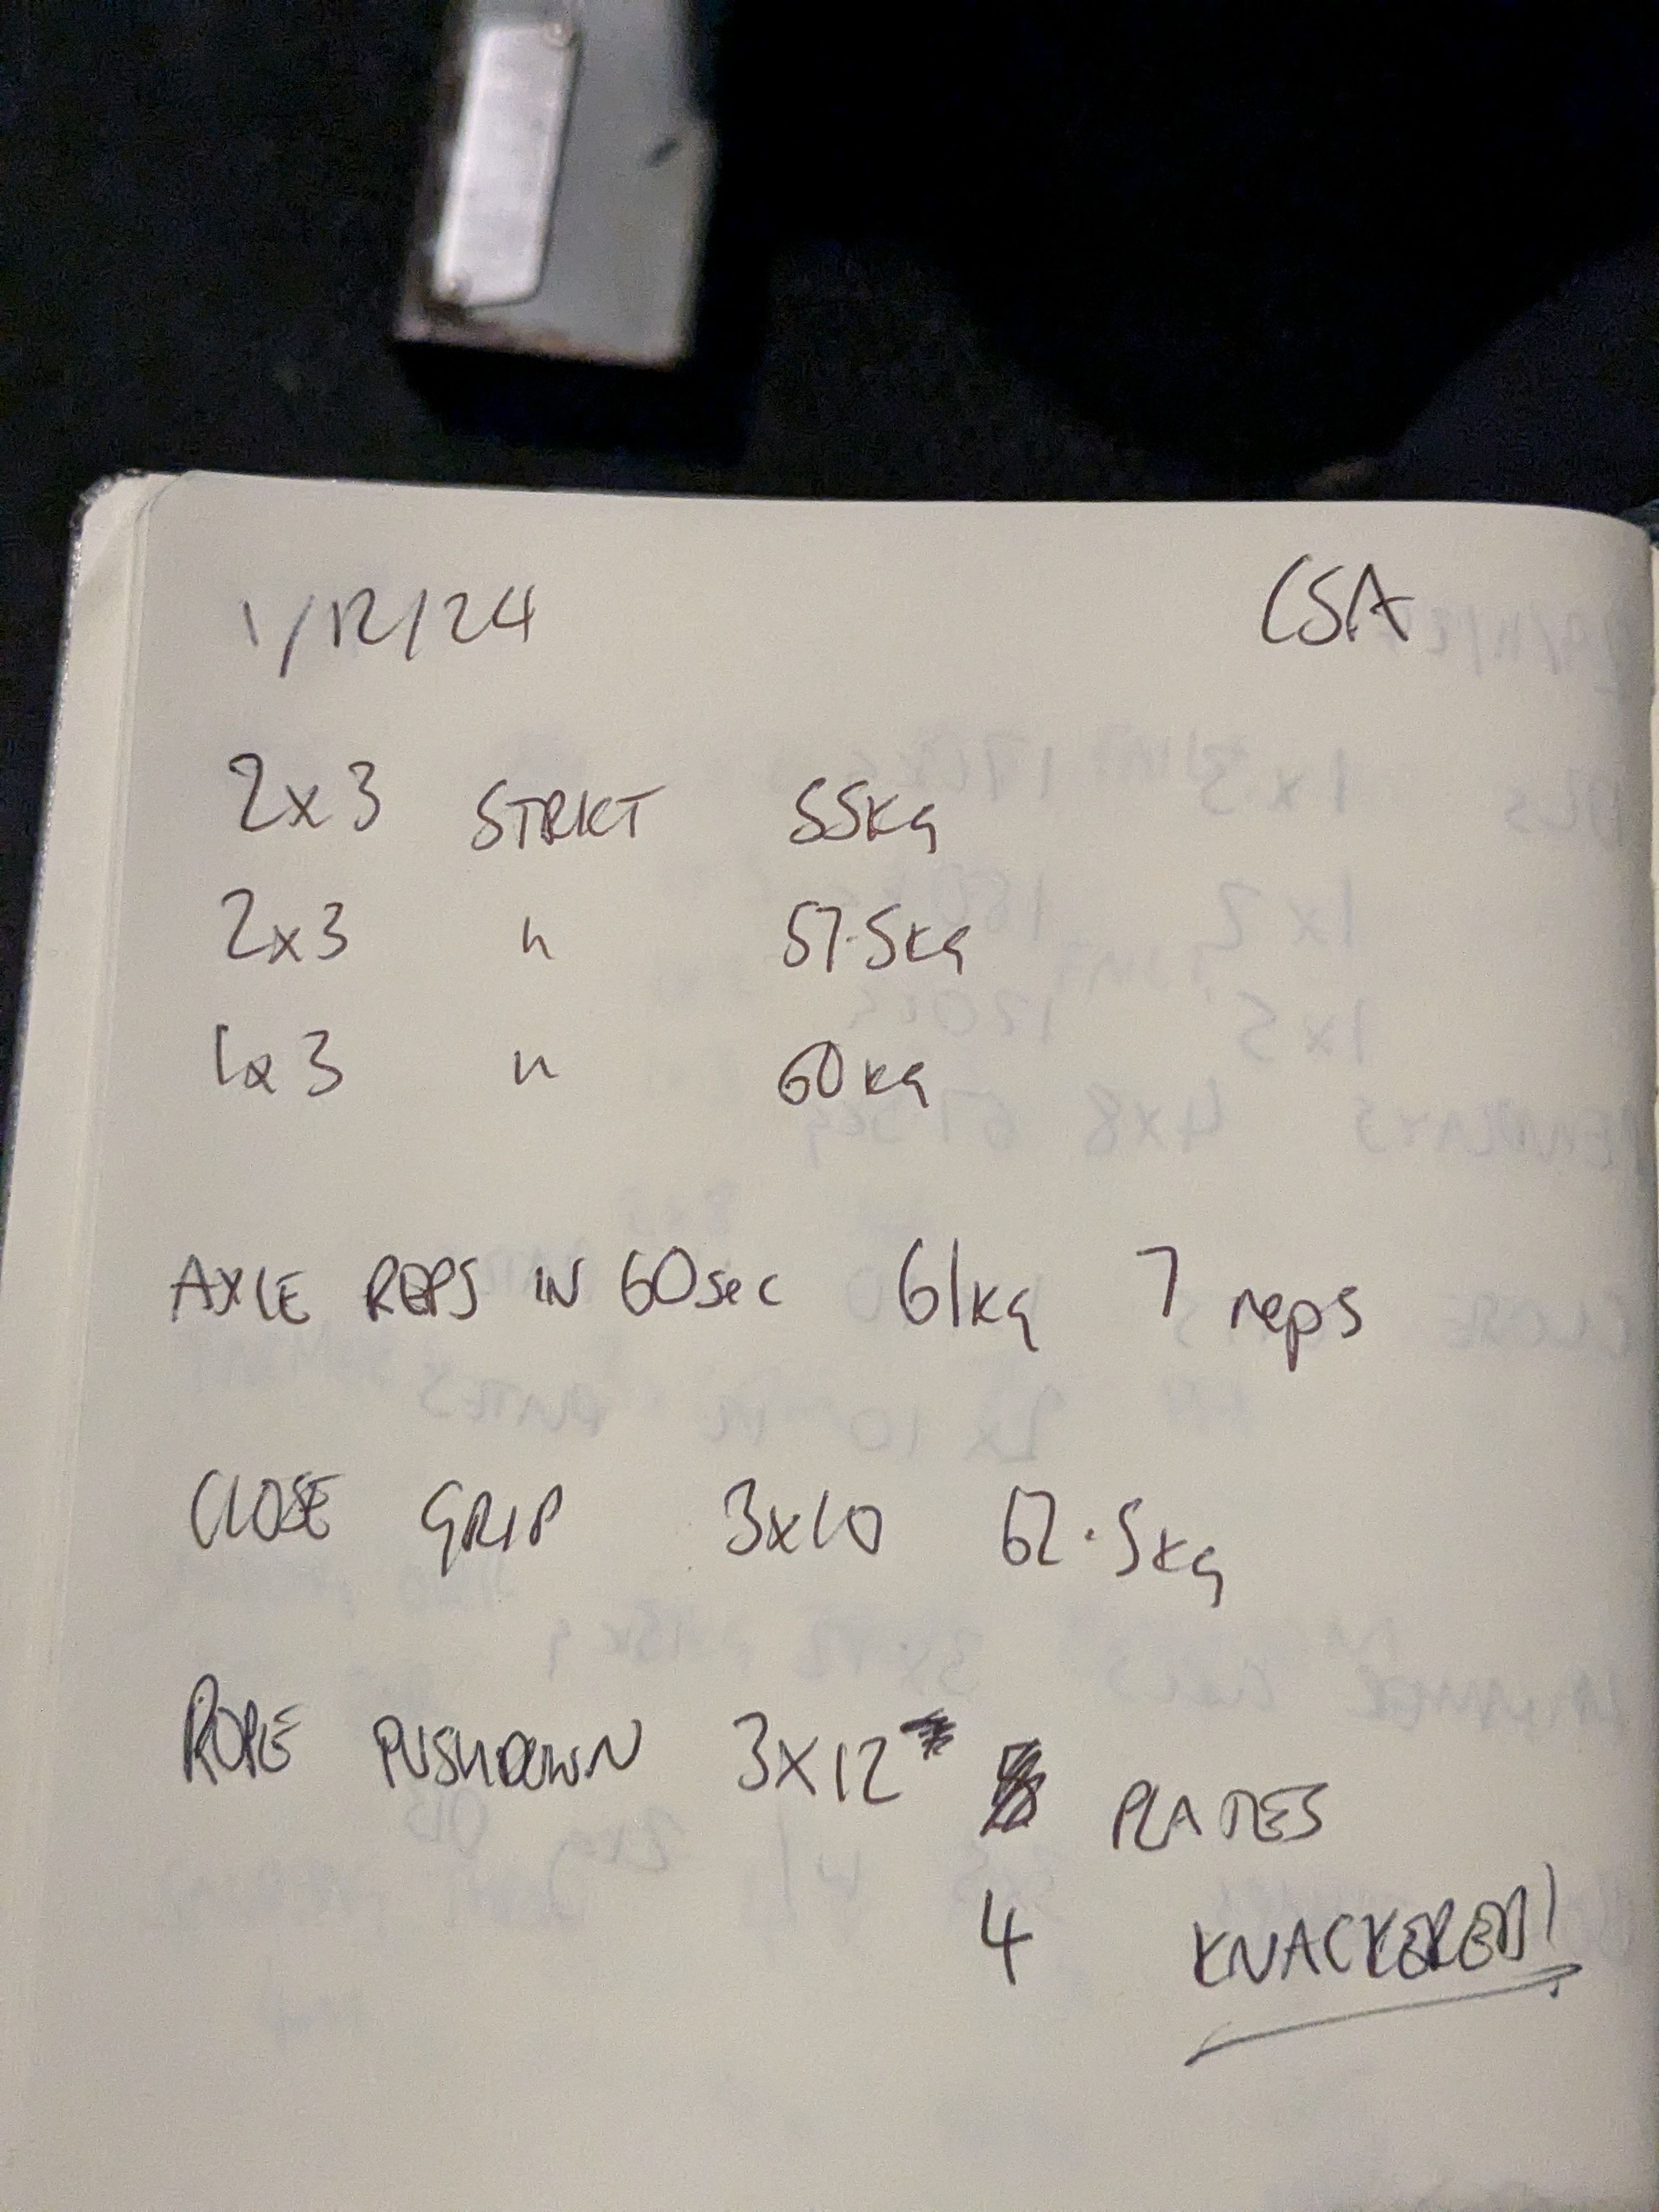 1/12/24 CSA
2x3 STRICT 55kg
2x3 " 57.5kg
1x3 " 60kg
AXLE REPS IN 60sec 61kg 7 reps
CLOSE GRIP 3x10 62.5kg
ROPE PUSHDOWN 3x12 PLATES
4 KNACKERED!